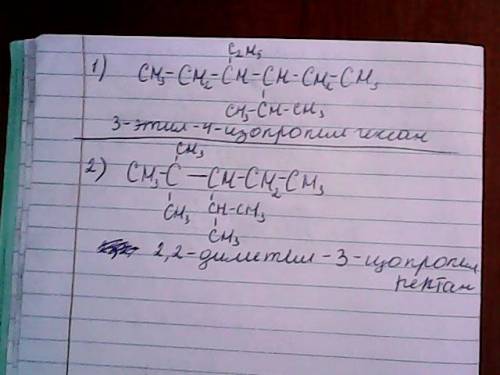 C₂H₅
1) CH₃-CH₂-CH-CH-CH₂-CH₃
CH₃-CH-CH₃
3-этил-4-изопропил гексан
CH₃
2) CH₃-C-CH-CH₂-CH₃
CH₃ CH-CH₃
CH₃
2,2-диметил-3-изопропил
пентан